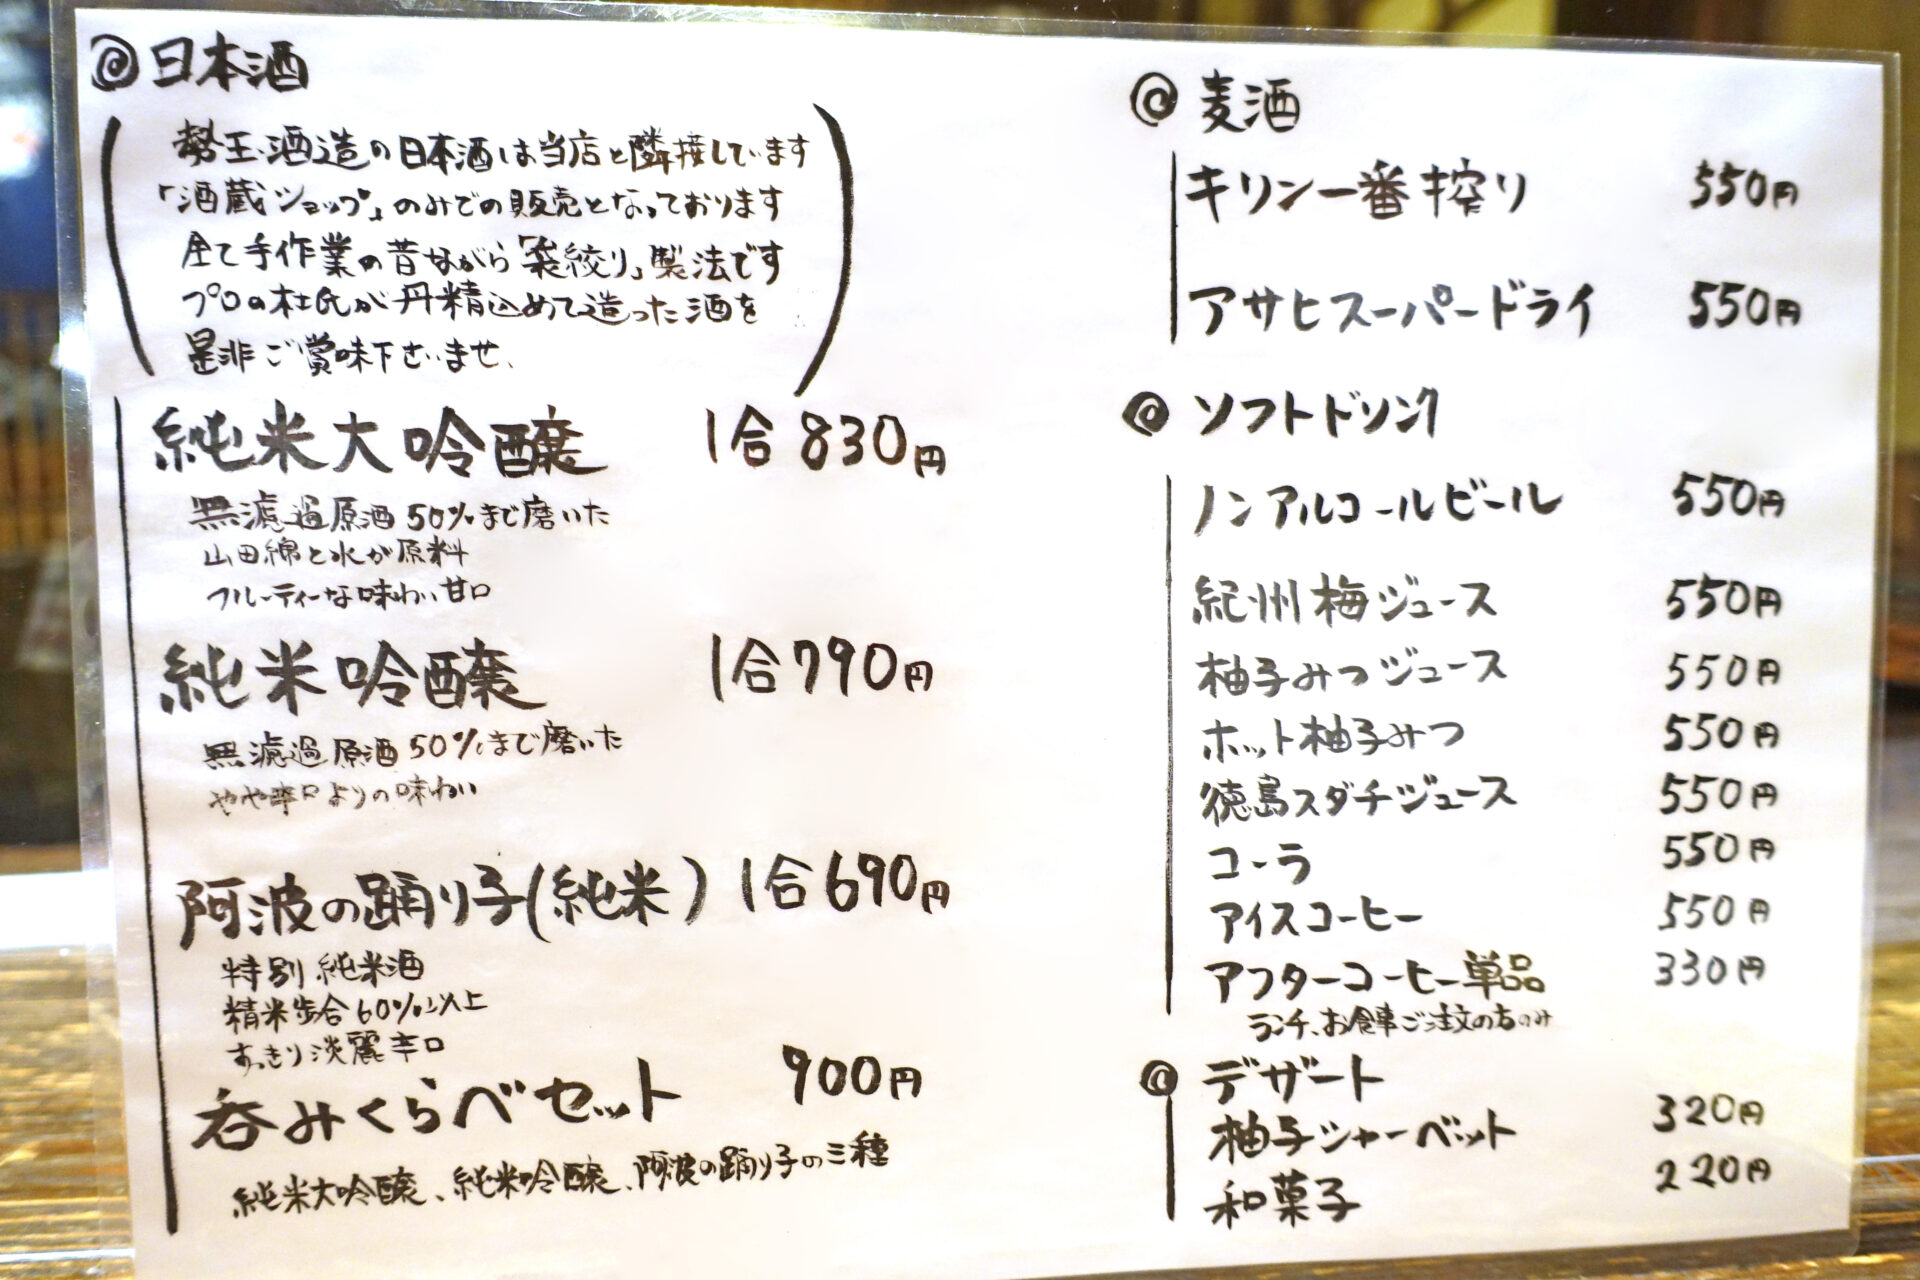 日本酒
勢玉酒造の日本酒は当店と隣接しています
「酒蔵ショップ」のみでの販売となっております
全て手作業の昔ながら「袋絞り」製法です
プロの杜氏が丹精込めて造った酒を
是非ご賞味下さいませ、
純米大吟醸 1合830円
無濾過原酒50%まで磨いた
山田綿と水が原料
フルーティーな味わい甘口
純米吟醸 1合790円
無濾過原酒50%まで磨いた
やや辛口よりの味わい
阿波の踊り子(純米) 1合690円
特別純米酒
精米歩合60%以上
すっきり淡麗辛口
呑みくらべセット 900円
純米大吟醸、純米吟醸、阿波の踊り子の三種
麦酒
キリン一番搾り 550円
アサヒスーパードライ 550円
ソフトドリンク
ノンアルコールビール 550円
紀州梅ジュース 550円
柚子みつジュース 550円
ホット柚子みつ 550円
徳島スダチジュース 550円
コーラ 550円
アイスコーヒー 550円
アフターコーヒー単品 330円
ランチ、お食事ご注文の方のみ
デザート
柚子シャーベット 320円
和菓子 220円